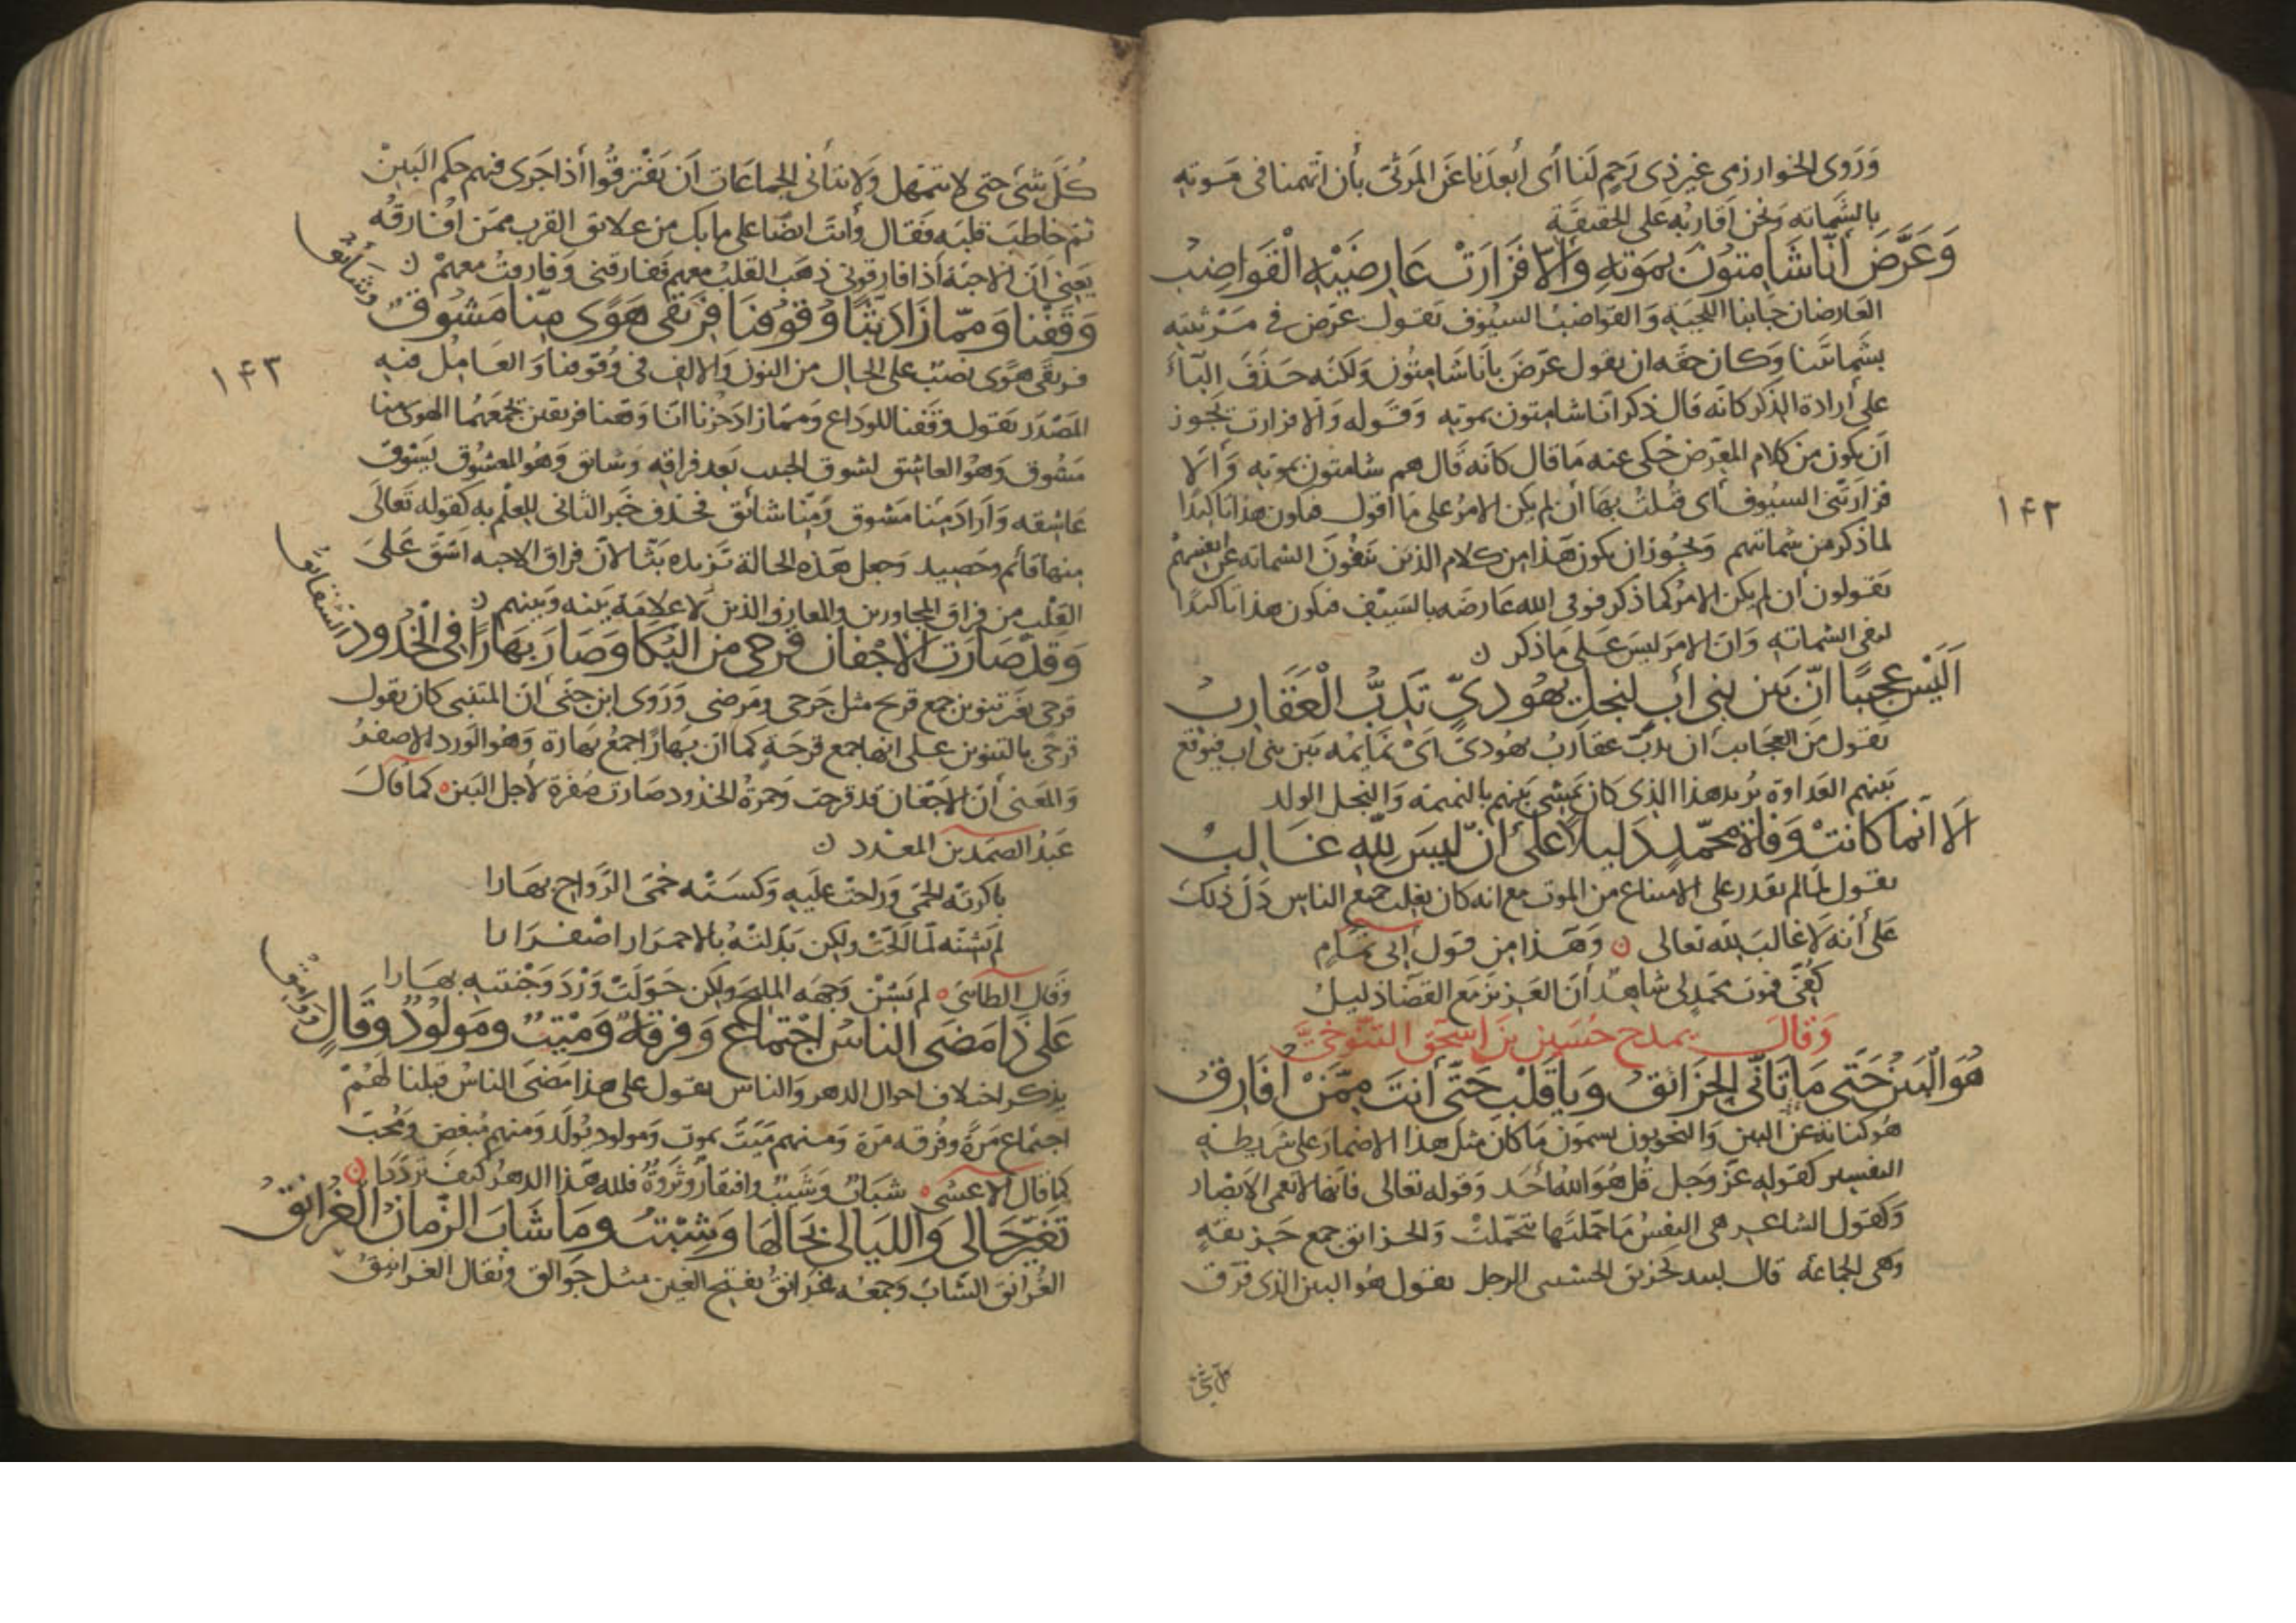 وَرَوى الخوارزمى غير ذى رَحِم لَنا أى أبعدَنا عَن المَرثىّ بأن اتّهمنا فى مَوته
بالشَماته وَنحن أقاربُه عَلى الحقيقَة
وَعَرَّضَ أَنّا شَامِتُونَ بمَوتِهِ وَإلّا فَزَارَتْ عَارِضَيْهِ الْقَوَاضِبُ
العَارضان جَانبا اللحيَه وَالقواضبُ السيُوف يَقول عرّض فى مَرثيته
بشماتتنا وَكان حقه ان يقول عَرّضَ بأنا شَامِتُون وَلكنه حَذَفَ البَآءَ
على أرادة الذكر كانّه قال ذكر انّا شامتون بموته وَقَوله وَالا فزارت يَجوز
أن يكون من كلام المعَرّض حُكى عنه مَا قال كانّه قَال هم شامتون بموته وَالا
فزارَتنى السيُوف أى قتُلتُ بهَا أن لم يكن الامرُ على مَا أقول فيكون هذا تاكيدًا
لما ذكر من شماتتهم وَيجُوز ان يكون هَذا من كلام الذين يَنفُونَ الشماته عن انفسهمْ
يَقولون أن لم يكن الامرُ كما ذكر فرمى الله عَارضَه بالسَيْف فيكون هذا تاكيدًا
لنفى الشماتة وَان الامرَ ليسَ عَلى مَا ذكر ن
اَلَيْسَ عَجِيبًا انّ بَين بَنى أبٍ لِنَجلِ يَهُودِىٍّ تَدِبُّ الْعَقَارِبُ
يَقول مِنَ العجَايب أن يَدبّ عقاربُ يهُودىّ اىْ نَمَايمُه بَين بنى اب فيوقع
بَينهم العَداوة يُريد هذا الذى كان يَمشى بَينهم بالنميمَه وَالنجل الولد
اَلَا اِنّما كانتْ وَفاةُ مُحمّدٍ دَلِيلًا عَلَى أنْ لَيسَ لِلّهِ غَالِبُ
يقول لمّا لم يَقدر على الامتناع من الموت مع انه كان يغلب جميع الناس دَلّ ذلك
عَلى أنه لَا غالبَ لله تعالى ن وَهَذا من قول أبى تمَام
كَفى فموت محمّد لى شاهد أن العَزيز مَع القضَا ذليلُ
وَقالَ يمدح حُسَين بنَ إسحَق التَّنُوخىَّ
هُوَ الْبَينُ حَتّى مَا تَأَنّى الْحَزَائقُ وَيَا قَلْبِ حَتّى أنتَ مِمَّنْ أُفَارِقُ
هُو كناية عَن البين وَالنحويون يسمون مَا كان مثلَ هذا الاضمارَ على شريطة
التفسير كقوله عَزّ وَجل قُل هُوَ اللهُ أحَد وَقوله تعالى فانها لا تعمى الابصَار
وَكقول الشاعر هى النفسُ مَا حَمّلتَها تتحمّلتْ وَالحزائق جمع حَزيقَةٍ
وهى الجماعة قال لبيد كحزيق الحبشيين الزجل يقول هُو البين الذى فرّق
كل شئ
١۴٢
كُلّ شئ حتى لا تتمَهل وَلا تتأنى الجماعَات أن يَفترقُوا أذا جَرى فيهم حكم البَينْ
ثم خاطبَ قلبَه فقال وأنتَ ايضًا على ما بك من علايق القرب ممَن أُفارقُه
يَعنى أن الاحبّة أذا فارقونى ذهَبَ القلبُ معهم ففارقنى وَفارقتُ معهمْ ن
وَقَفنا وَممّا زَادَ بَثًّا وُقُوفنَا فريقَى هَوًى مِنّا مَشُوقٌ وَشَائقُ
فريقَى هَوًى نصبٌ على الحال من النون وَالالف فى وُقوفنا وَالعَامِلُ فيه
المَصْدَر يَقول وَقَفنا للوداع وَممّا زاد حُزننا انّا وَقفنا فريقين يجمعهُما الهوى منا
مَشوق وَهُو العَاشق لشوق الحبيب بَعد فراقه وَشائق وَهُو المعشُوق يَشوق
عَاشقه وَأرادَ مِنا مَشوق وَمِنّا شائق فحذف خَبر الثانى للعِلْم به كقوله تَعالَى
منها قَائم وحَصيد وَجعل هَذه الحالة تَزيده بَثّا لانّ فراق الاحبه اشقّ عَلىَ
القلب من فراق المجاورين والمعارف الذين لا علاقَة بَينه وَبينهم ن
وَقَدْ صَارَتِ الأجْفان قَرحى مِنَ البُكا وَصَارَ بَهَارًا فى الخُدُودِ الشقائقُ
قرحَى بغَير تنوين جمع قريح مثل جَرحى ومَرضى وَرَوى ابن جنّى أن المتنبى كان يقول
قرحًى بالتنوين على انها جمع قرحَةٍ كما ان بهارًا جمعُ بهَارة وَهُو الوَرد الاصفرُ
وَالمَعنى أن الاجفان قد قرحت وَحمرةُ الخدُود صَارت صُفرة لأجل البَين ه كما قَالَ
عَبدُ الصَمد بن المعذل ن
باكرته الحمَّى وَراحت عليَهِ وَكسَتْه حُمَّى الرَّواح بهَارا
لم تَشنه لمّا أَلحّتْ ولكِن بَدّلتْهُ بالاحمرَار اصْفرَارا
وَقال الطاىَى ه لم تَشِنْ وَجهَه المليح ولكن حَوّلَتْ وَرْدَ وَجْنتيهِ بهَارا
عَلى ذَا مَضَى الناسُ اجْتمِاعٌ وَفرقَةٌ وَمَيْتٌ ومَولُودٌ وقَالٍ وَوَامِقُ
يذكر اختلاف احوال الدهر وَالناس يقول على هذا مَضَى الناسُ قبلنا لهُمْ
اجتماع مَرةً وَفُرقه مرَة وَمنهم مَيّتٌ يموت وَمولود يُولَد وَمنهم مُبغض وَمُحبّ
كما قال الاعشى ه شبَابٌ وَشَيبٌ وَافتقارٌ وَثروَةٌ فلله هَذا الدهرُ كيفَ تَردّدَا ن
تَغَيّرَ حَالِى وَاللّيَالِى بحَالِهَا وَشِبْتُ ومَا شَابَ الزّمانُ الغُرَانِقُ
الغُرانق الشَابُ وَجمعُه غَرانقُ بفتح الغين مثل جَوالق وَيُقال الغرانيق
١۴٣